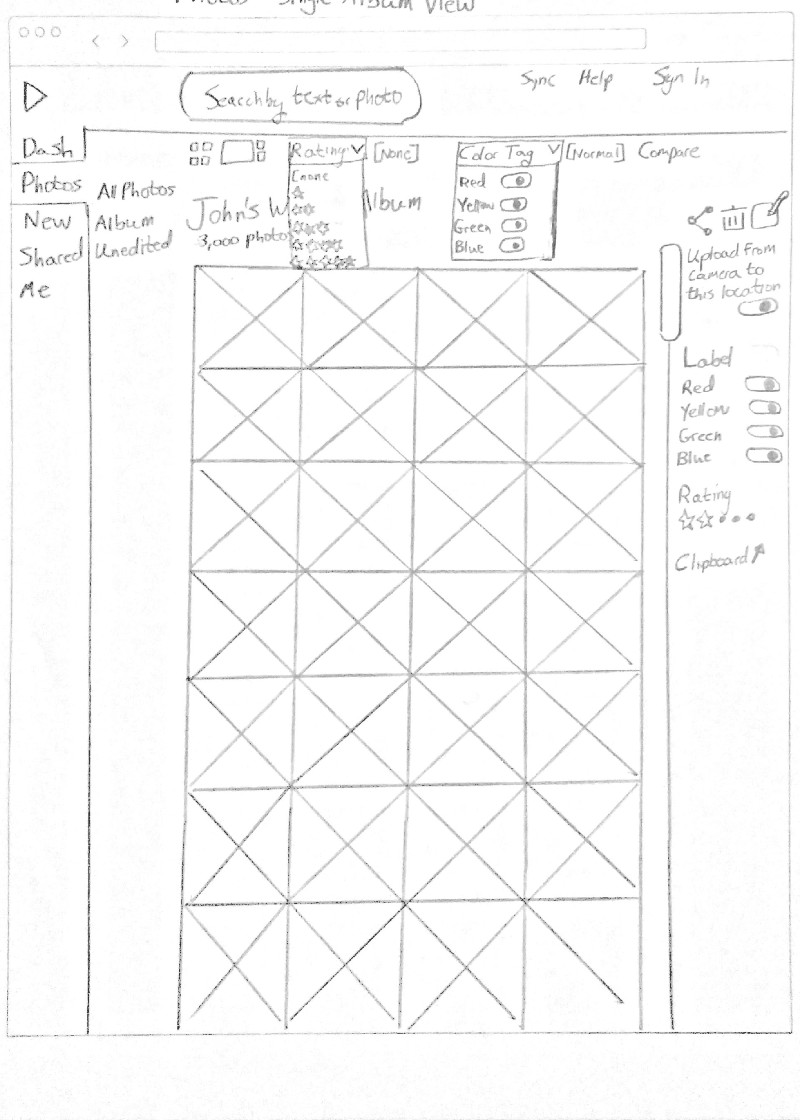 Photos Single Album View
Search by text or photo
Sync Help Sign In
Dash
Photos
New
Shared
Me
All Photos
Album
Unedited
Rating [None]
[none
Color Tag [Normal] Compare
Red
Yellow
Green
Blue
John's W Album
3,000 photos
Upload from
camera to
this location
Label
Red
Yellow
Green
Blue
Rating
Clipboard